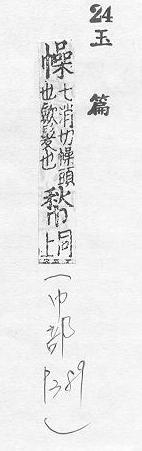 24
玉篇
幧七消切幧頭
也斂髮也
㡑同
上
(巾部P389)